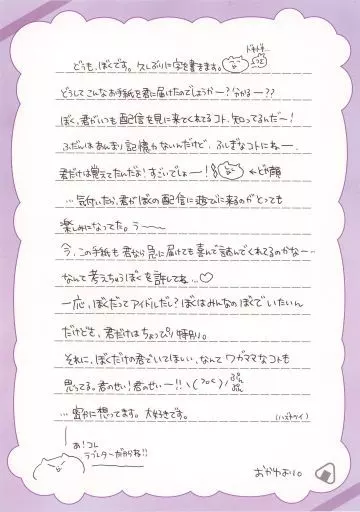 ドキドキ…
どうも、ぼくです。久しぶりに字を書きます。
どうしてこんなお手紙を君に届けたのでしょうか ー？分かるー？？
ぼく、君がいつも配信を見に来てくれてるコト、知ってるんだ〜！
ふだんはあんまり記憶力ないんだけど、ふしぎなコトにねー、
君だけは覚えてたんだよ！すごいでしょー！！ ←ドヤ顔
…気付いたら、君がぼくの配信に遊びに来るのがとっても
楽しみになってた。う〜〜
今、この手紙も君なら急に届けても喜んで読んでくれてるのかなー…
なんて考えちゃうぼくを許してね…♡
一応、ぼくだってアイドルだし？ぼくはみんなのぼくでいたいん
だけども、君だけはちょっぴり特別。
それに、ぼくだけの君でいてほしい、なんてワガママなコトも
思ってる。君のせい！君のせいー！！ヽ( )ﾉ ぷん ぷん
…密かに想ってます。大好きです。
あ！コレ
ラブレターだからね！！
おかゆ